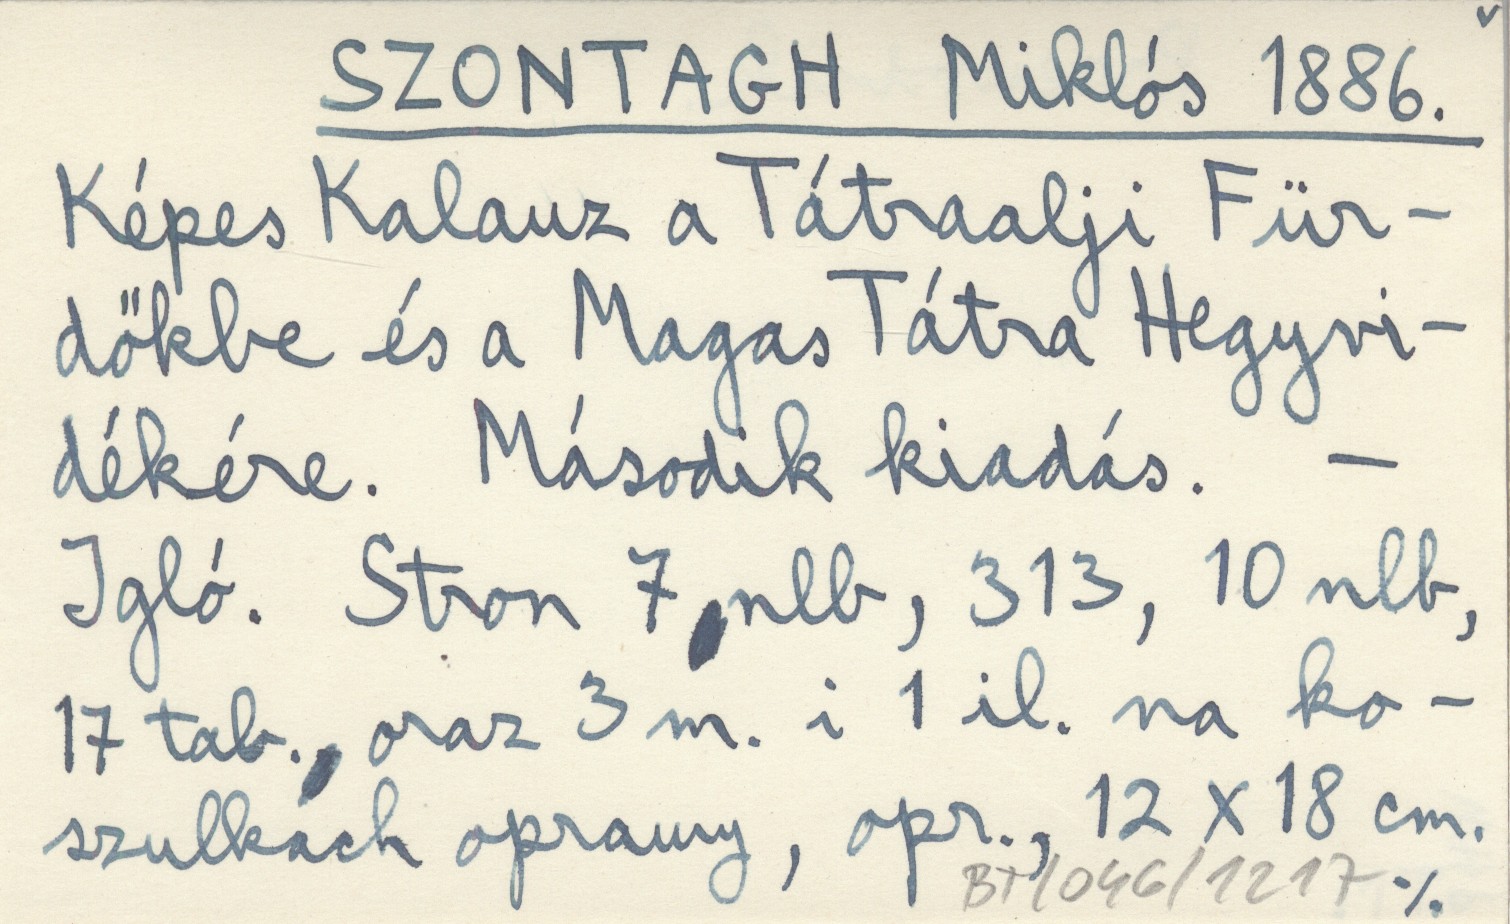 SZONTAGH Miklós 1886.
Képes Kalauz a Tátraalji Für-
dőkbe és a Magas Tátra Hegyvi-
dékére. Második kiadás. —
Igló. Stron 7 nlb, 313, 10 nlb,
17 tab., oraz 3 m. i 1 il. na ko-
szulkach oprawy, opr., 12 x 18 cm.
BT/046/1217 ·/.